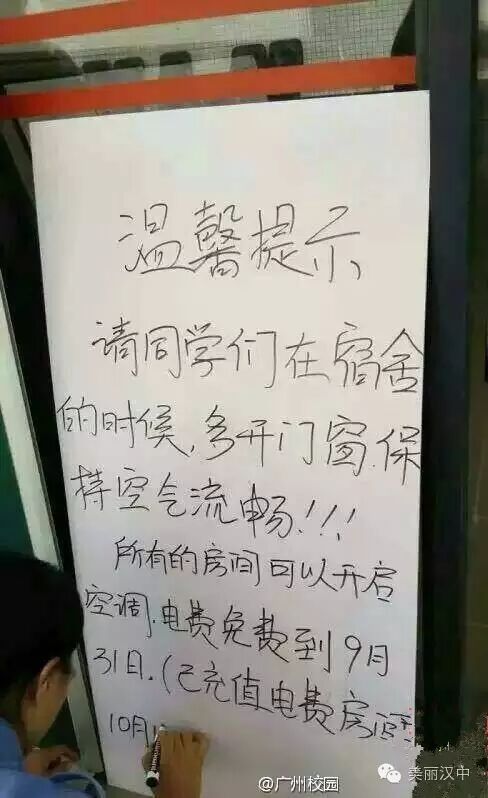 温馨提示
请同学们在宿舍
的时候,多开门窗.保
持空气流畅!!!
所有的房间可以开启
空调.电费免费到9月
31日.(已充值电费房
10月1
@广州校园
美丽汉中